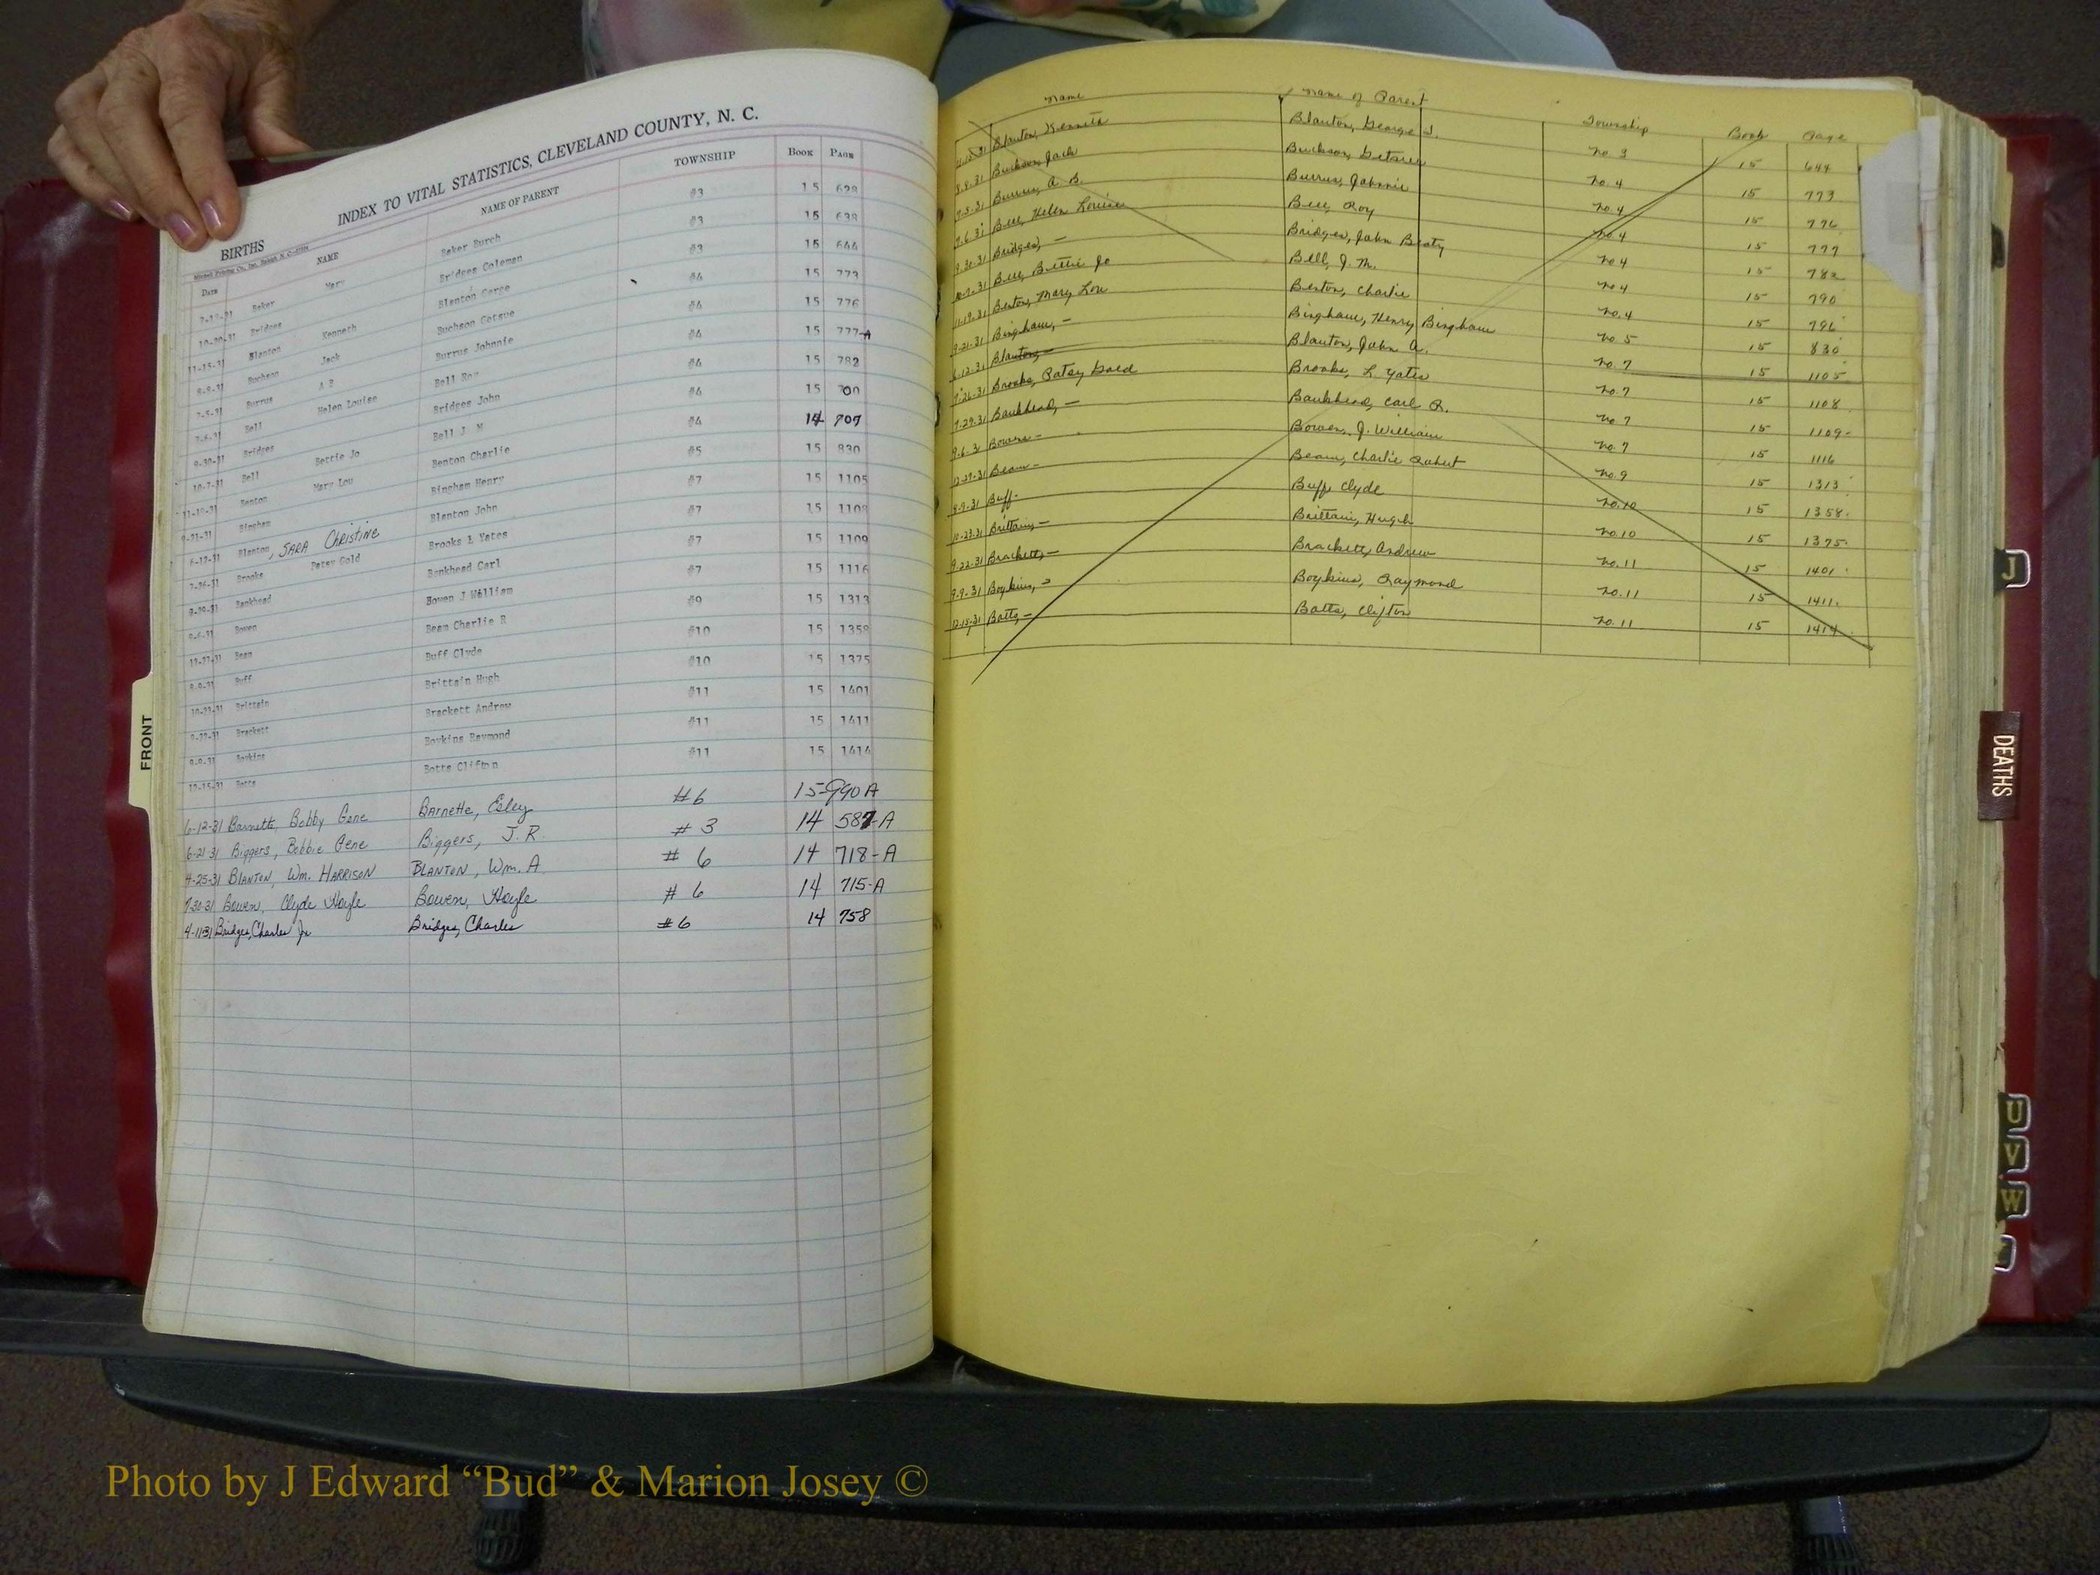 INDEX TO VITAL STATISTICS, CLEVELAND COUNTY, N. C.
BIRTHS
Date NAME NAME OF PARENT TOWNSHIP BOOK PAGE
Baker Mary Baker Burch #3 15 628
10-20-31 Bridges Bridges Coleman #3 15 638
11-15-31 Blanton Kenneth Blanton George #3 15 644
8-8-31 Buchson Jack Buchson Getsue #4 15 773
7-5-31 Burrus A B Burrus Johnnie #4 15 776
7-6-31 Bell Helen Louise Bell Roy #4 15 777-A
9-30-31 Bridges Bridges John #4 15 782
10-7-31 Bell Bettie Jo Bell J M #4 15
11-19-31 Benton Mary Lou Benton Charlie #4 14 707
9-21-31 Bingham Bingham Henry #5 15 830
6-12-31 Blanton, SARA Christine Blanton John #7 15 1105
7-26-31 Brooks Patsy Gold Brooks L Yates #7 15 1108
Bankhead Bankhead Carl #7 15 1109
9-6-31 Bowen Bowen J William #7 15 1116
12-27-31 Beam Beam Charlie R #9 15 1313
9-9-31 Buff Buff Clyde #10 15 1358
10-23-31 Brittain Brittain Hugh #10 15 1375
Brackett Brackett Andrew #11 15 1401
9-9-31 Boykins Boykins Raymond #11 15 1411
12-15-31 Botts Botts Clifton #11 15 1414
6-12-31 Barnette, Bobby Gene Barnette, Esley #6 15-990A
6-21-31 Biggers, Bobbie Gene Biggers, J. R. #3 14 587-A
4-25-31 BLANTON, Wm. HARRISON BLANTON, Wm. A #6 14 718-A
7-30-31 Bowen, Clyde Hoyle Bowen, Hoyle #6 14 715-A
4-11-31 Bridges, Charles Jr Bridges, Charles #6 14 758
FRONT
Name Name of Parent Township Book Page
11-15-31 Blanton, Kenneth Blanton, George No. 3 15 644
8-8-31 Buckson, Jack Buckson, No. 4 15 773
7-5-31 Burrus, A B. Burrus, Johnnie No. 4 15 776
7-6-31 Bell, Helen Louise Bell, Roy No 4 15 777
9-30-31 Bridges, — Bridges, John Beaty No 4 15 782
10-7-31 Bell, Bettie Jo Bell, J. M. No 4 15 790
11-19-31 Benton, Mary Lou Benton, Charlie No. 4 15 796
9-21-31 Bingham, — Bingham, Henry Bingham No 5 15 830
6-12-31 Blanton, — Blanton, John A. No. 7 15 1105
7-26-31 Brooks, Patsy Gold Brooks, L. Yates No. 7 15 1108
7-29-31 Bankhead, — Bankhead, Carl R. No 7 15 1109
9-6-3 Bowen — Bowen, J. William No. 7 15 1116
12-27-31 Beam — Beam, Charlie Robert No. 9 15 1313
8-9-31 Buff — Buff, Clyde No. 10 15 1358
10-23-31 Brittain, — Brittain, Hugh No. 10 15 1375
9-22-31 Brackett, — Brackett, Andrew No. 11 15 1401
9-9-31 Boykins, — Boykins, Raymond No. 11 15 1411
12-15-31 Botts, — Botts, Clifton No. 11 15 1414
J
DEATHS
U
V
W
Photo by J Edward “Bud” & Marion Josey ©